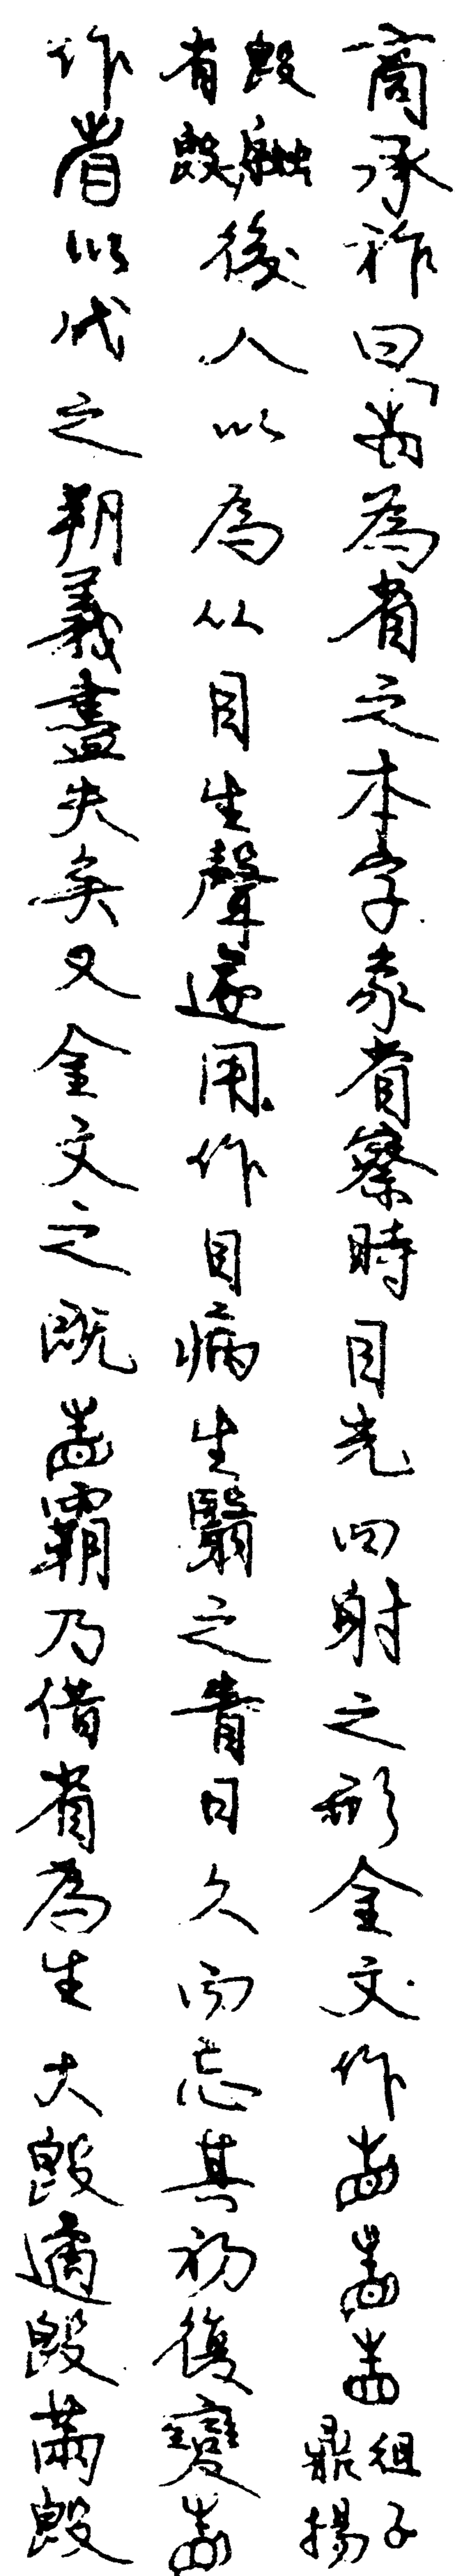 商承祚曰「為省之本字象省察時目光四射之形金文作組子鼎揚
𣪘有𣪘後人以為从目生聲遂用作目病生翳之眚日久而忘其初復變
作省以代之朔義盡失矣又金文之既霸乃借省為生大𣪘遹𣪘𣪘